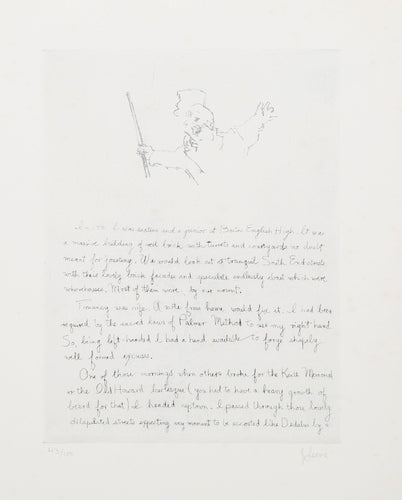 I was sixteen and a junior at Boston English High. It was
a massive building of red brick with turrets and courtyards no doubt
meant for jousting. We would look out at tranquil South End streets
with their lovely brick facades and speculate endlessly about which were
whorehouses. Most of them were by our count.
Truancy was rife. A note from home would fix it. I had been
required by the sacred laws of Palmer Method to use my right hand
So, being left-handed I had a hand available to forge shapely
well formed excuses.
One of those mornings when others broke for the Keith Memorial
or the Old Howard burlesque (you had to have a heavy growth of
beard for that) I headed uptown. I passed through those lovely
dilapidated streets expecting any moment to be accosted like Dedalus by
43/100